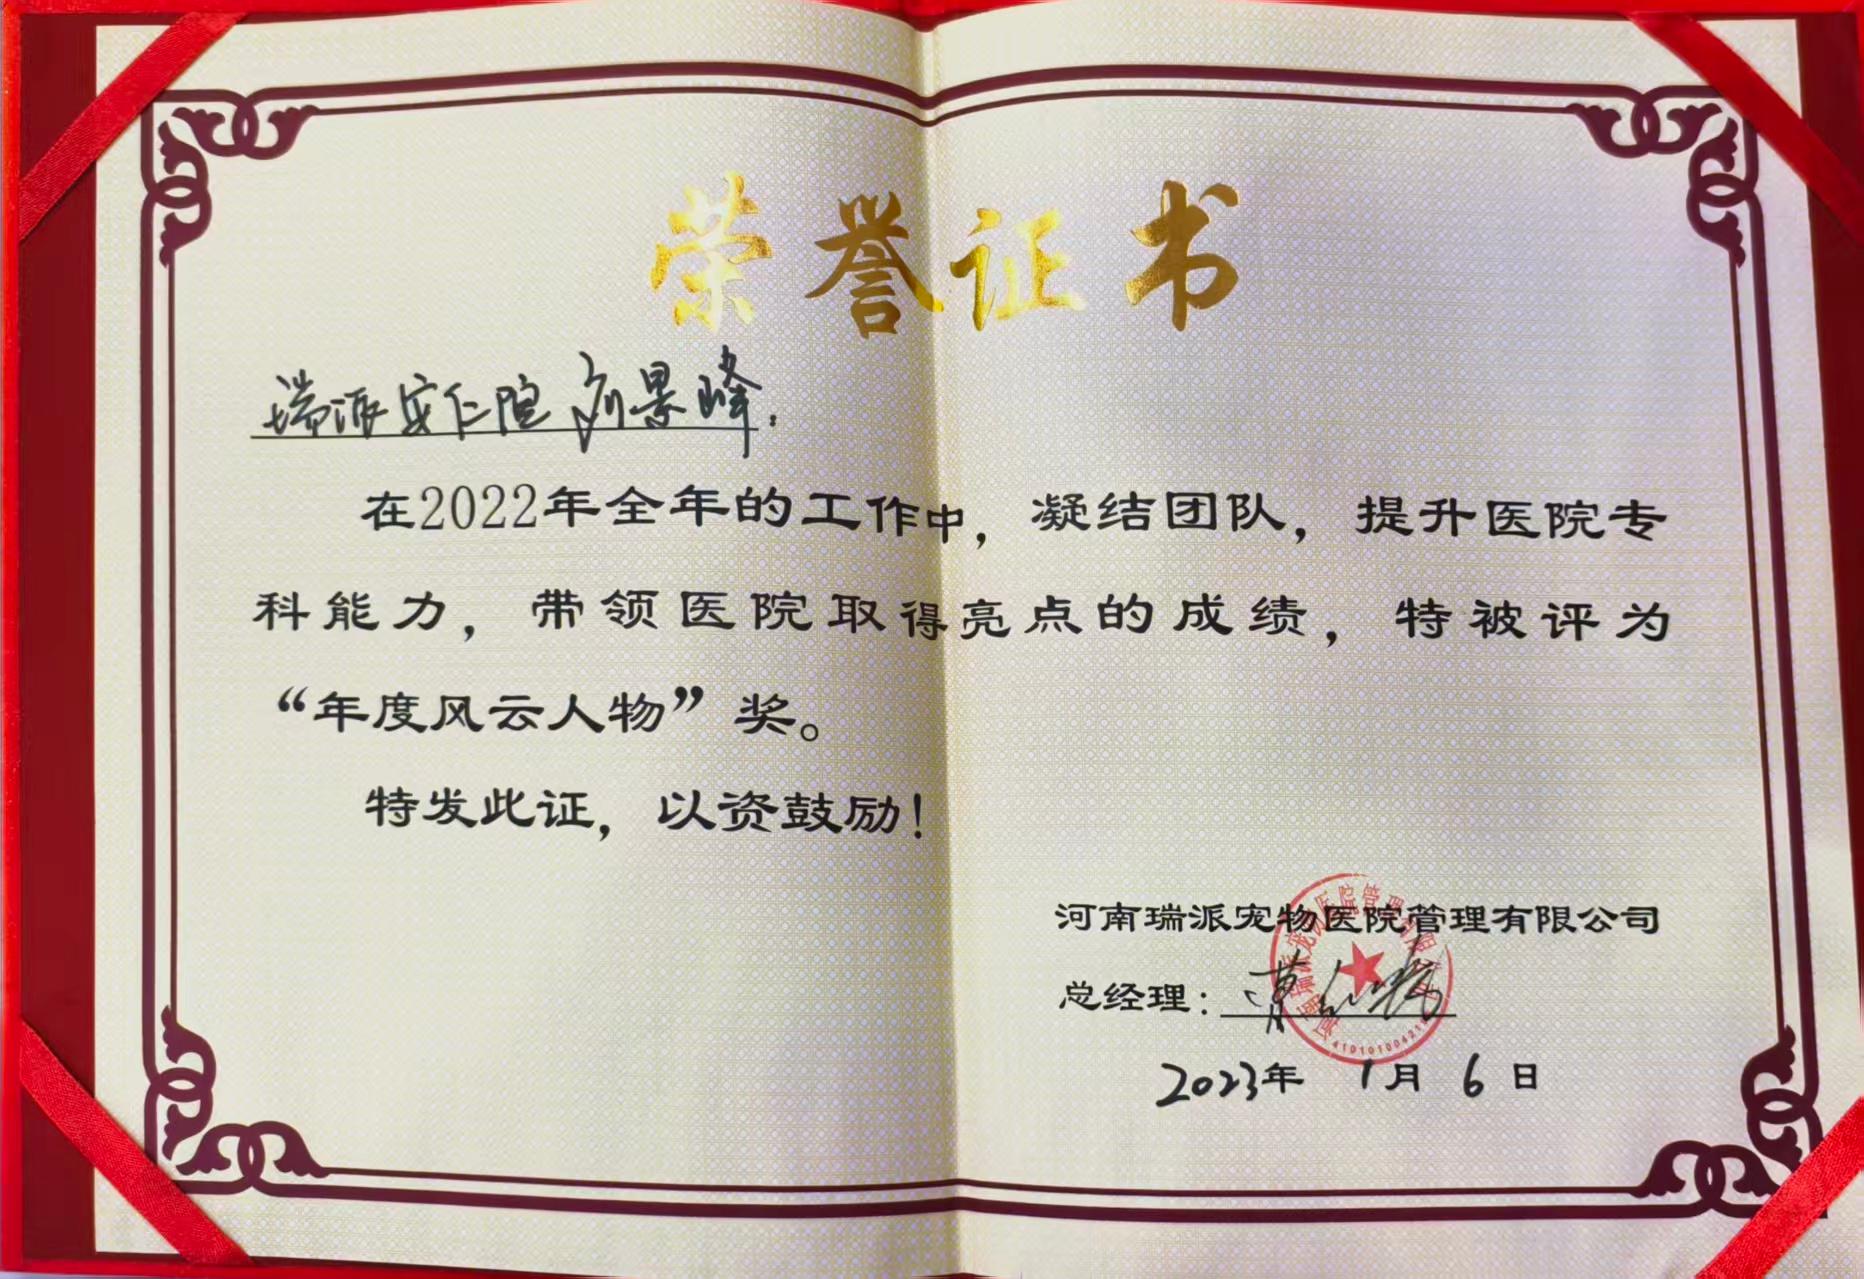 荣誉证书
瑞派安仁院 刘景峰:
在2022年全年的工作中，凝结团队，提升医院专
科能力，带领医院取得亮点的成绩，特被评为
“年度风云人物”奖。
特发此证，以资鼓励！
河南瑞派宠物医院管理有限公司
总经理：
2023年 1月 6日
河南瑞派宠物医院管理有限公司